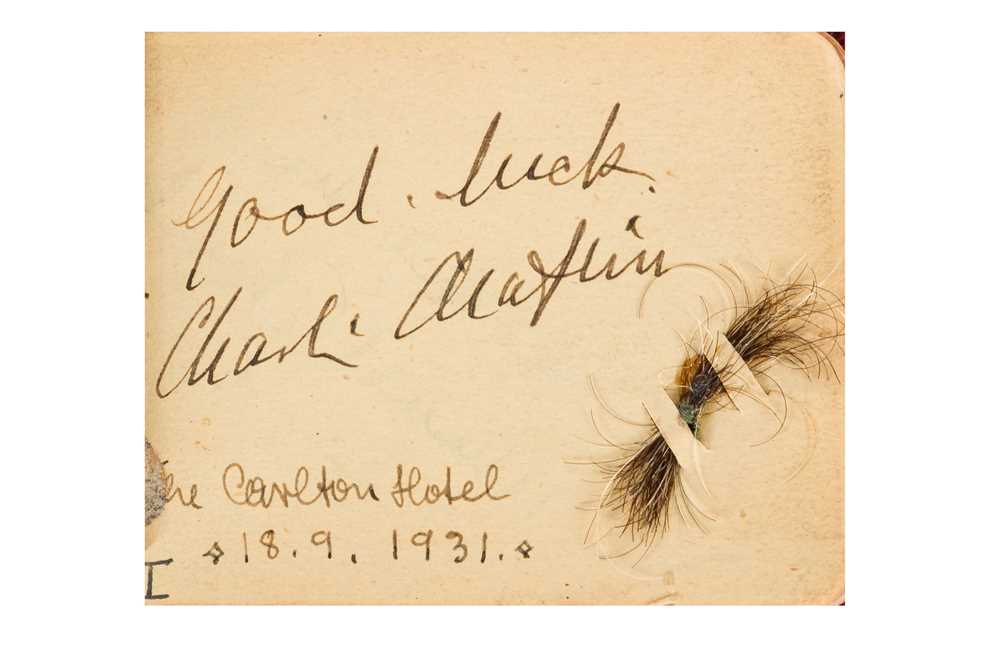 Good. luck.
Charlie Chaplin
The Carlton Hotel
18.9. 1931.
I